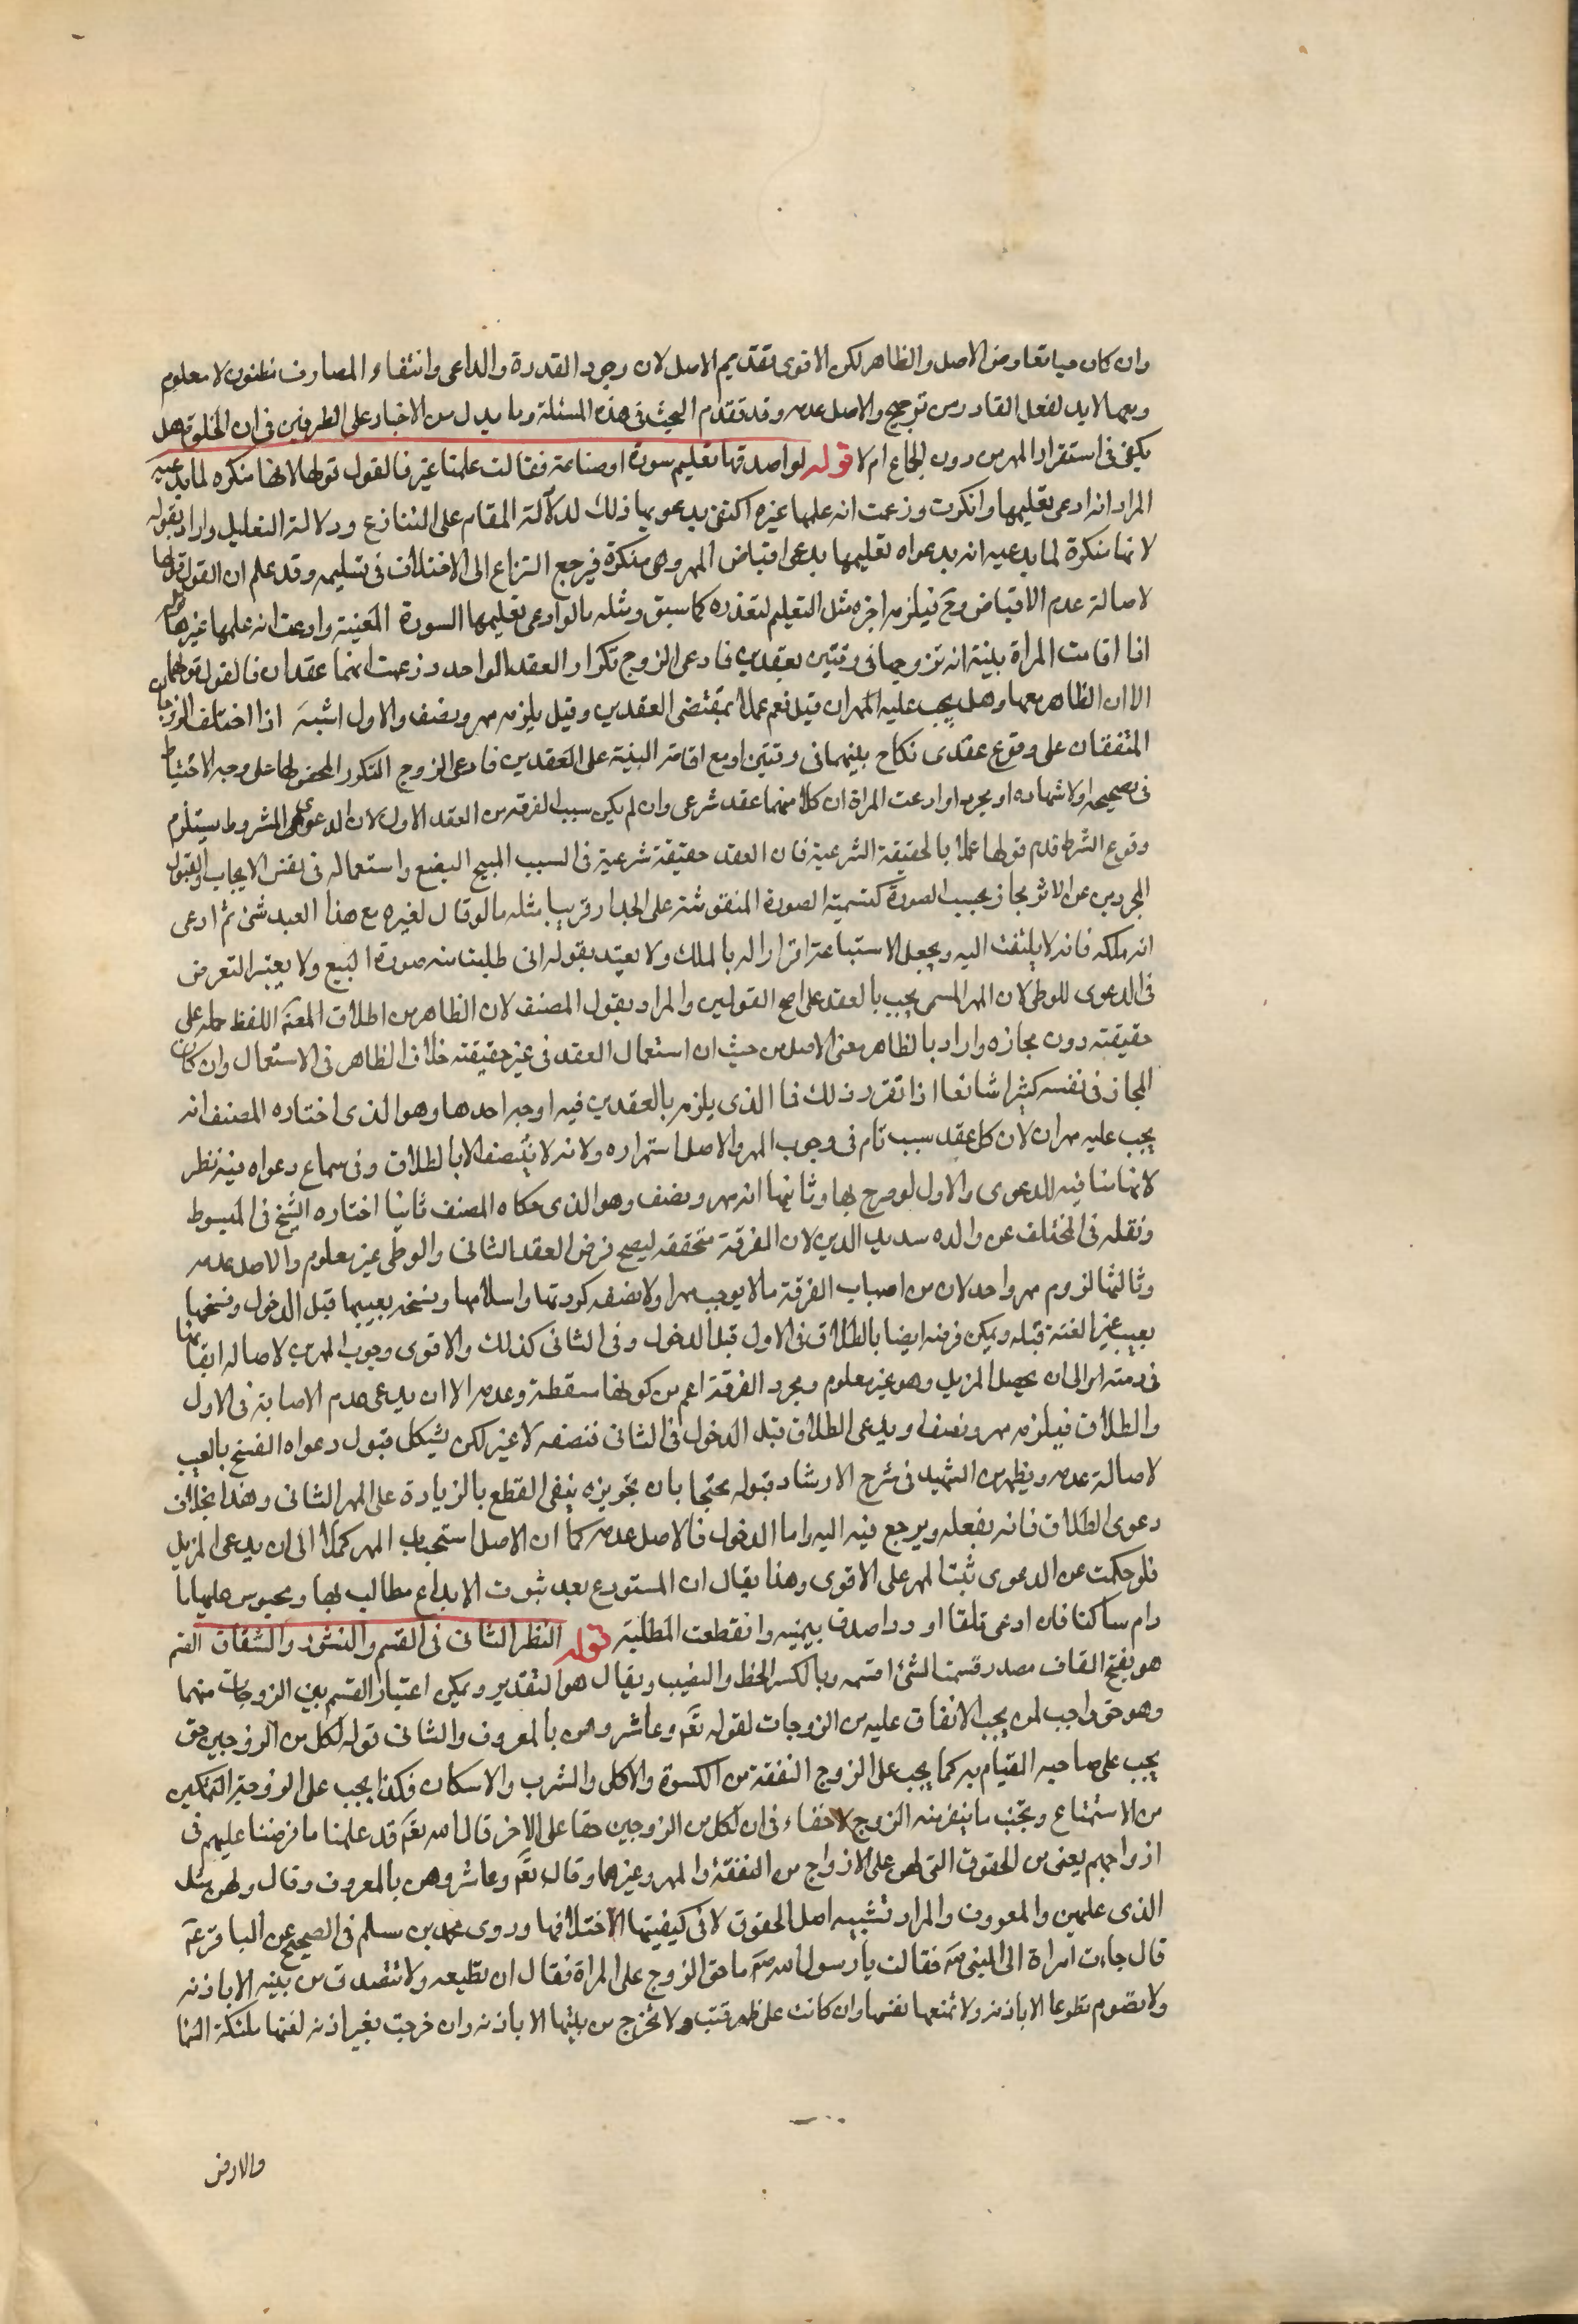 وان كان مما تعارض الاصل والظاهر لكن الاقوى تقديم الاصل لان وجود القدرة والداعى وانتفاء الصارف مظنون لا معلوم
ومعها لابد لفعل القادر من ترجيح والاصل عدمه وقد تقدم البحث فى هذه المسئلة وما يدل من الاخبار على الطرفين فى ان الخلوة هل
يكفى فى استقرار المهر من دون الجماع ام لا قوله لو اصدقها تعليم سورة او صناعة فقالت علمنى غيره فالقول قولها لانها منكره لما يدعيه
المراد انه ادعى تعليمها وانكرت وزعمت انه علمها غيره اكتفى بدعويها ذلك لدلالة المقام على التنازع ودلالة التعليل واراد بقوله
لانها منكرة لما يدعيه انه بدعواه تعليمها يدعى اقباض المهر وهى منكرة فيرجع النزاع الى الاختلاف فى تسليمه وقد علم ان القول قولها
لاصالة عدم الاقباض وح فيلزمه اجرة مثل التعليم لتعذره كما سبق ومثله ما لو ادعى تعليمها السورة المعينة وادعت انه علمها غيرها قوله
اذا اقامت المراة بينة انه تزوجها فى وقتين بعقدين فادعى الزوج تكرار العقد الواحد وزعمت انهما عقدان فالقول قولها
لان الظاهر معها وهل يجب عليه مهران قيل نعم عملا بمقتضى العقدين وقيل يلزمه مهر ونصف والاول اشبه اذا اختلف الزوجان
المتفقان على وقوع عقدى نكاح بينهما فى وقتين او مع اقامة البينة على العقدين فادعى الزوج التكرر المحض لها على وجه الاحتياط
فى تصحيحه او لاشهاده او يجرد او ادعت المراة ان كلا منهما عقد شرعى وان لم يكن سبب الفرقة من العقد الاول لان الدعوى المشروط يستلزم
وقوع الشرط قدم قولها عملا بالحقيقة الشرعية فان العقد حقيقة شرعية فى السبب المبيح للبضع واستعماله فى نفس الايجاب والقبول
المجردين عن الاثر مجاز بحسب الصورة كتسمية الصورة المنقوشة على الجدار قريبا مثله ما لو قال لغيره بع هذا العبد منى ثم ادعى
انه ملكه فانه لا يلتفت اليه ويجعل الاستبياع اقرارا له بالملك ولا يعتد بقوله انى طلبت منه صورة البيع ولا يعتبر التعرض
فى الدعوى للوطى لان المهر المسمى يجب بالعقد على اصح القولين والمراد بقول المصنف لان الظاهر من اطلاق اللفظ حمله على
حقيقته دون مجازه واراد بالظاهر معنى الاصل من حيث ان استعمال العقد فى غير حقيقته خلاف الظاهر فى الاستعمال وان كان
المجاز فى نفسه كثيرا شائعا اذا تقرر ذلك فما الذى يلزمه بالعقدين فيه اوجه احدها وهو الذى اختاره المصنف انه
يجب عليه مهران لان كل عقد سبب تام فى وجوب المهر والاصل استمراره ولانه لا يتنصف الا بالطلاق وفى سماع دعواه فيه نظر
لانها منافيه للدعوى والاول لو صرح بها وثانيها انه مهر ونصف وهو الذى حكاه المصنف ثانيا اختاره الشيخ فى المبسوط
ونقله فى المختلف عن والده سديد الدين لان الفرقة متحققه ليصح فرض العقد الثانى والوطى غير معلوم والاصل عدمه
وثالثها لزوم مهر واحد لان من اسباب الفرقة ما لا يوجب مهرا ولا نصفه كردتها واسلامها وفسخه بعيبها قبل الدخول وفسخها
بعيب غير العنة قبله ويمكن فرضه ايضا بالطلاق فى الاول قبل الدخول وفى الثانى كذلك والاقوى وجوب المهرين لاصاله بقائهما
فى ذمته الى ان يحصل المزيل وهو غير معلوم ومجرد الفرقة اعم من كونها مسقطة وعدمه الا ان يدعى عدم الاصابة فى الاول
والطلاق فيلزمه مهر ونصف او يدعى الطلاق قبل الدخول فى الثانى فنصفه لا غير لكن يشكل قبول دعواه الفسخ بالعيب
لاصالة عدمه ويظهر من الشهيد فى شرح الارشاد قبوله محتجا بان تجويزه ينفى القطع بالزيادة على المهر الثانى وهذا بخلاف
دعوى الطلاق فانه بفعله ويرجع فيه اليه واما الدخول فالاصل عدمه كما ان الاصل استحباب المهر كملا الى ان يدعى المزيل
فلو سكت عن الدعوى ثبت المهر على الاقوى وهذا يقال ان المستودع بعد ثبوت الايداع مطالب بها ومحبوس عليها ما
دام ساكتا فان ادعى تلفا او ردا صدق بيمينه وانقطعت المطلبة قوله النظر الثانى فى القسم والنشوز والشقاق القسم
هو بفتح القاف مصدر قسمت الشئ اقسمه وبالكسر الحظ والنصيب ويقال هو التقدير ويمكن اعتبار القسم بين الزوجات منهما
وهو حق واجب لمن يجب الانفاق عليه من الزوجات لقوله تع وعاشروهن بالمعروف والثانى قوله لكل من الزوجين حق
يجب على صاحبه القيام به كما يجب على الزوج النفقة من الكسوة والاكل والشرب والاسكان فكذا يجب على الزوجة التمكين
من الاستمتاع وتجنب ما ينفر منه الزوج لا خفاء فى ان لكل من الزوجين حقا على الاخر قال الله تع قد علمنا ما فرضنا عليهم فى
ازواجهم يعنى من الحقوق التى لهن على الازواج من النفقة والمهر وغيرهما وقال تع وعاشروهن بالمعروف وقال ولهن مثل
الذى عليهن بالمعروف والمراد تشبيه اصل الحقوق لا فى كيفيتها لاختلافها وروى محمد بن مسلم فى الصحيح عن الباقر ع
قال جاءت امراة الى النبى ص فقالت يا رسول الله ص ما حق الزوج على المراة فقال ان تطيعه ولا تتصدق من بيته الا باذنه
ولا تصوم تطوعا الا باذنه ولا تمنعها نفسها وان كانت على ظهر قتب ولا تخرج من بيتها الا باذنه وان خرجت بغير اذنه لعنتها ملئكة السما
والارض